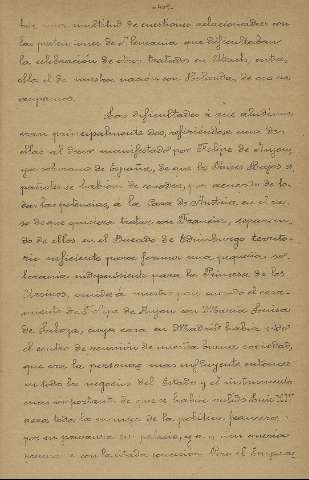 por una multitud de cuestiones relacionadas con
las pretensiones de Alemania que dificultaban
la celebración de otros tratados en Utrech, entre
ella el de nuestra nación con Holanda, de que nos
ocupamos.
Las dificultades á que aludimos
eran principalmente dos, refiriéndose una de
ellas al deseo manifestado por Felipe de Anjou,
ya soberano de España, de que los Paises Bajos es
pañoles se habían de conceder, por acuerdo de to
das las potencias, á la Casa de Austria, en el ca
so de que quisiera tratar con Francia, separan
do de ellos, en el Ducado de Limburgo territo
rio suficiente para formar una pequeña so
beranía independiente para la Princesa de los
Ursinos, venida á nuestro país cuando el casa
miento de Felipe de Anjou con María Luisa
de Saboya, cuya casa en Madrid había sido
el centro de reunión de mucha buena sociedad,
que era la persona mas influyente entonces
en todos los negocios del Estado y el instrumento
mas importante de que se había valido Luis XIV
para toda la marcha de la política francesa
por su privanza en palacio,
con la citada concesión. Pero el Empera